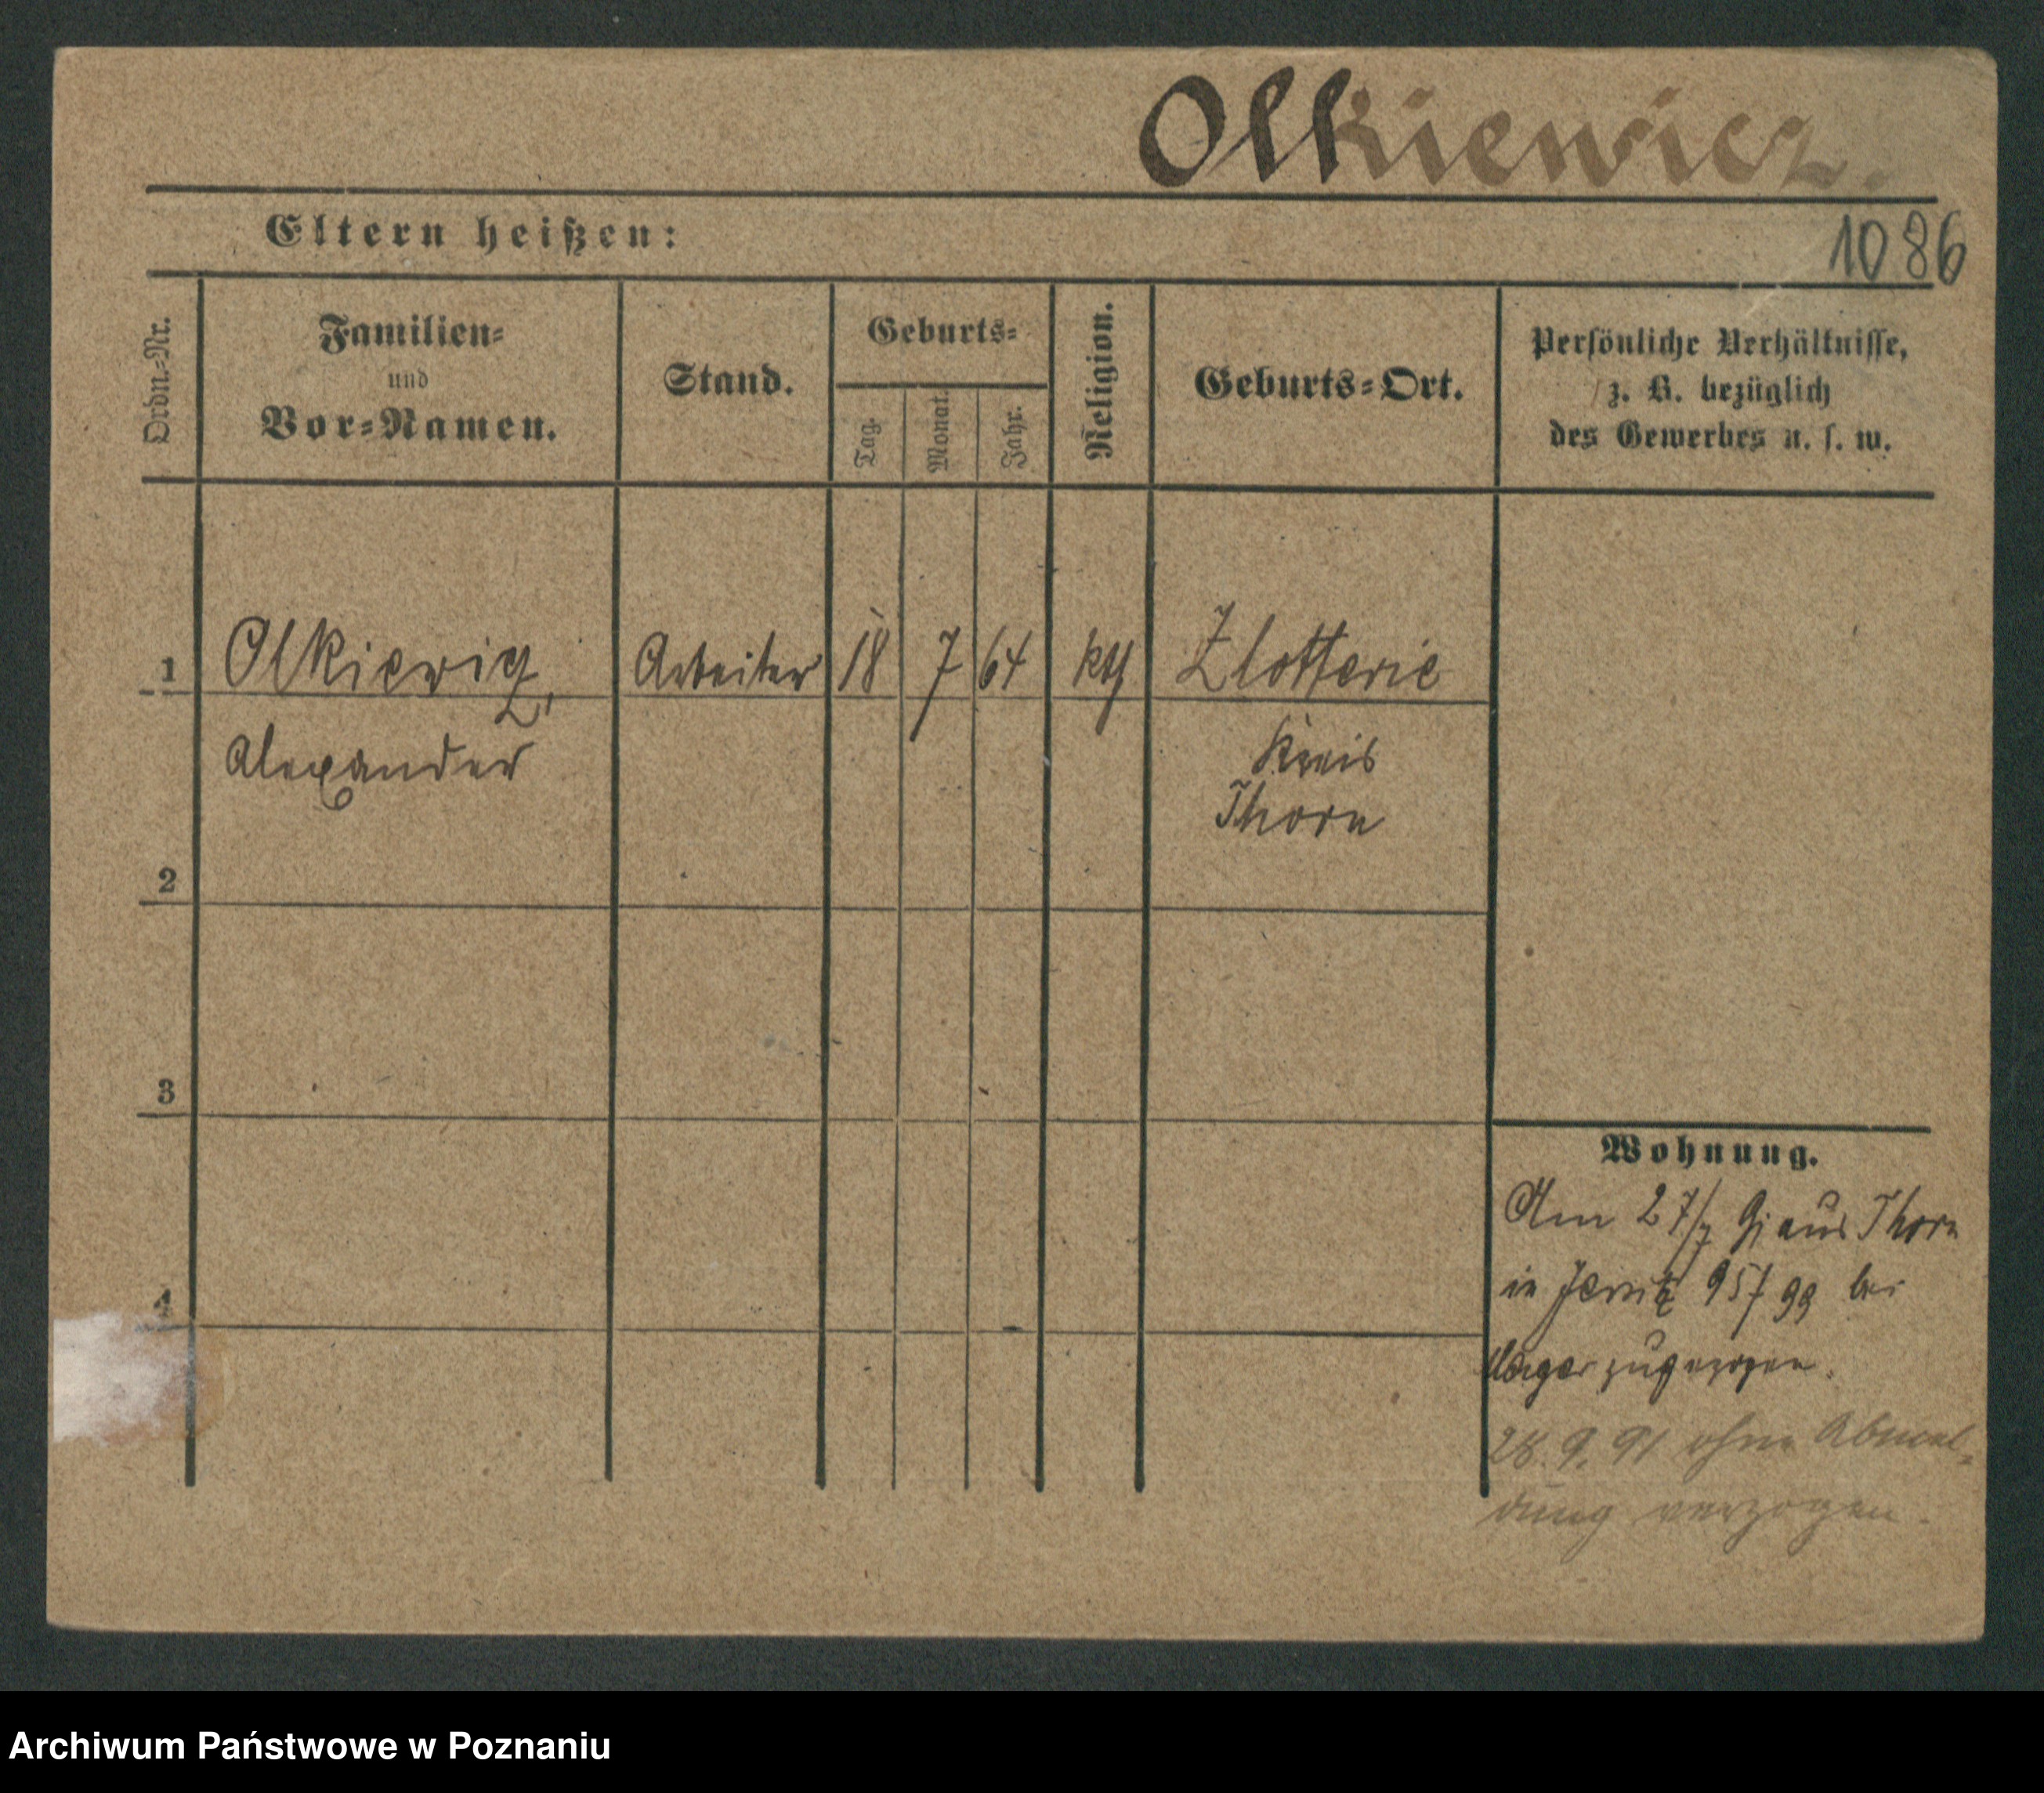 Olkiewicz.
Eltern heißen:
1086
Ordn.-Nr.
Familien-
und
Vor-Namen.
Stand.
Geburts-
Tag.
Monat.
Jahr.
Religion.
Geburts-Ort.
Persönliche Verhältnisse,
z. B. bezüglich
des Gewerbes u. s. w.
1 Olkiewicz, Arbeiter 18 7 64 kth Zlotterie
Alexander
Kreis
Thorn
2
3
4
Wohnung.
Am 27/7 91 aus Thorn
in Jersitz 95/99 bei
zugezogen.
28. 9. 91 ohne Abmel-
dung verzogen.
Archiwum Państwowe w Poznaniu